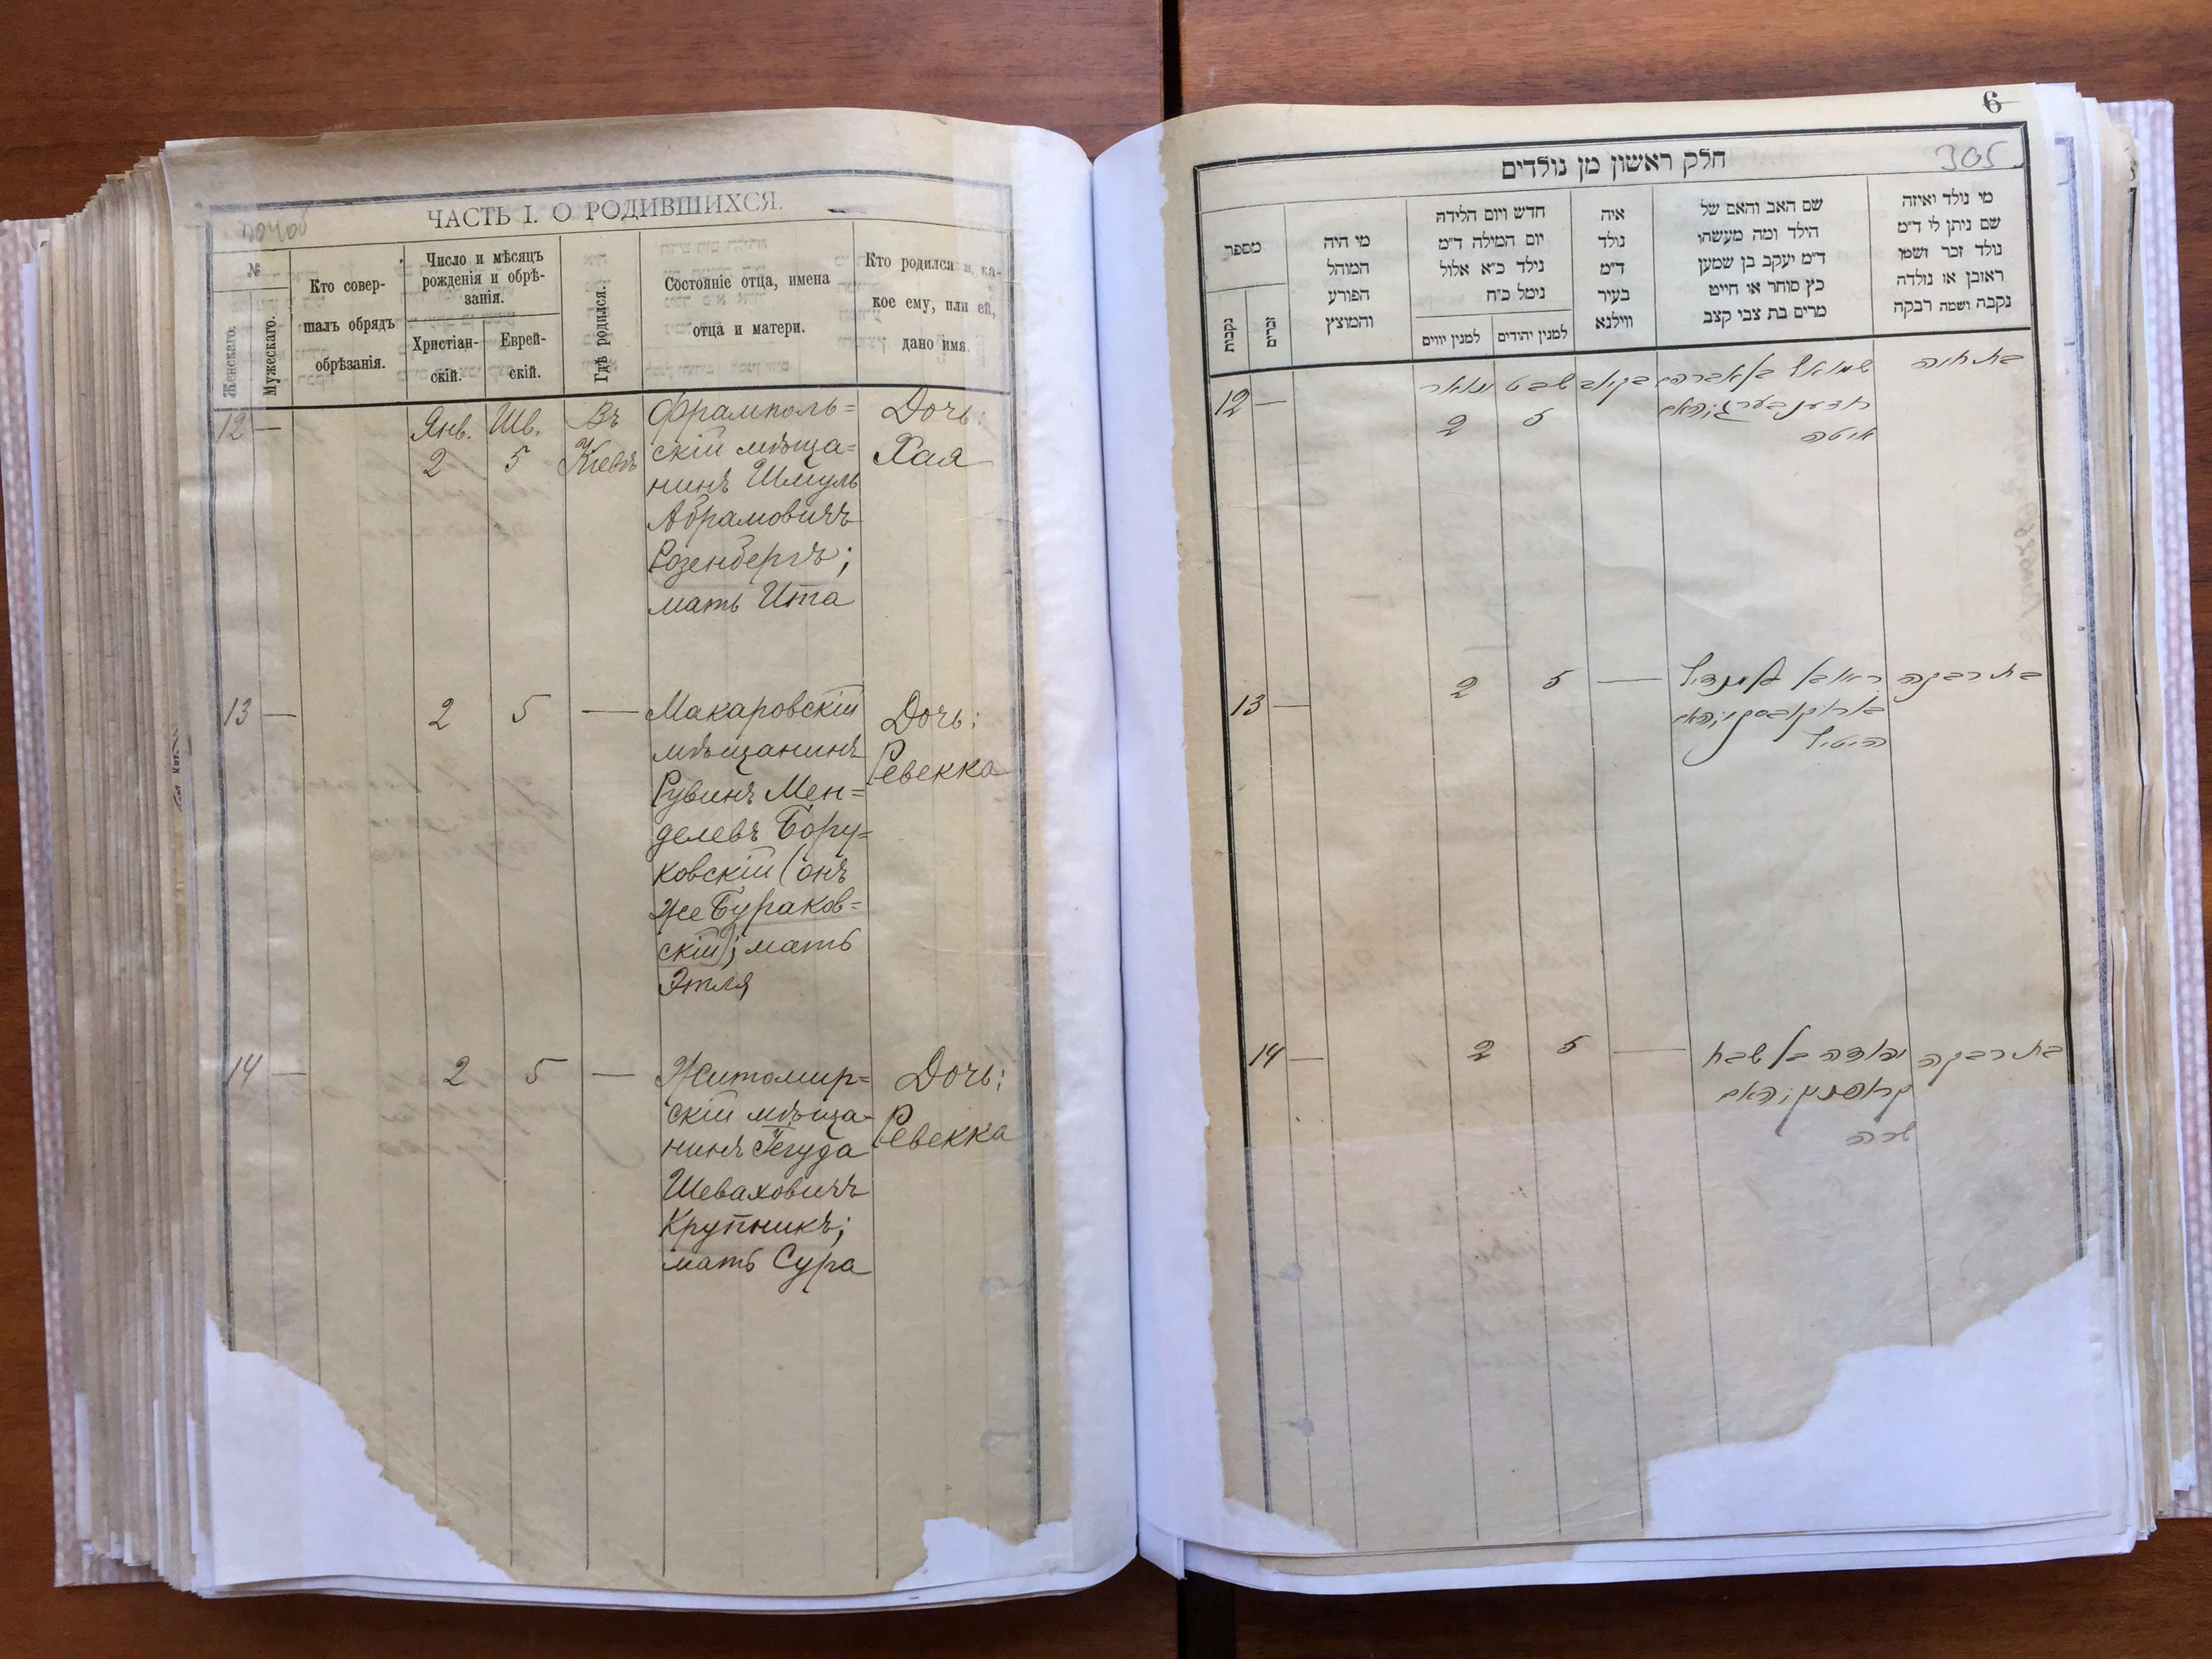 ЧАСТЬ I. О РОДИВШИХСЯ.
№
Женскаго.
Мужескаго.
Кто совер-
шалъ обрядъ
обрѣзанія.
Число и мѣсяцъ
рожденія и обрѣ-
занія.
Христіан-
скій.
Еврей-
скій.
Гдѣ родился.
Состояніе отца, имена
отца и матери.
Кто родился и ка-
кое ему, или ей,
дано имя.
12 — Янв. Шв. Въ Фрамполь= Дочь:
2 5 Кіевѣ скій мѣща= Хая
нинъ Шмуль
Абрамовичъ
Розенбергъ;
мать Ита
13 — 2 5 — Макаровскій Дочь:
мѣщанинъ Ревекка
Рувинъ Мен=
делевъ Бору=
ковскій (онъ
же Бураков=
скій); мать
Этля
14 — 2 5 — Житомир= Дочь:
скій мѣща= Ревекка
нинъ Іегуда
Шеваховичъ
Крупникъ;
мать Сура
6
305
חלק ראשון מן נולדים
מי נולד ואיזה
שם ניתן לי ד"מ
נולד זכר ושמו
ראובן או נולדה
נקבה ושמה רבקה
שם האב והאם של
הילד ומה מעשהו
ד"מ יעקב בן שמעון
כץ סוחר או חייט
מרים בת צבי קצב
איה
נולד
ד"מ
בעיר
ווילנא
חדש ויום הלידה
יום המילה ד"מ
נילד כ"א אלול
נימל כ"ח
למנין יהודים
למנין יווים
מי היה
המוהל
הפורע
והמוצץ
מספר
זכרים
נקבות
בת חוה שמואל בן אברהם בקיוב שבט ינואר — 12
ראזענבערג; האם 5 2
איטה
בת רבקה ראובן מענדיל — 5 2 — 13
והאם
היטיל
בת רבקה יהודה בן שבח — 5 2 — 14
קרופניק; האם
שרה